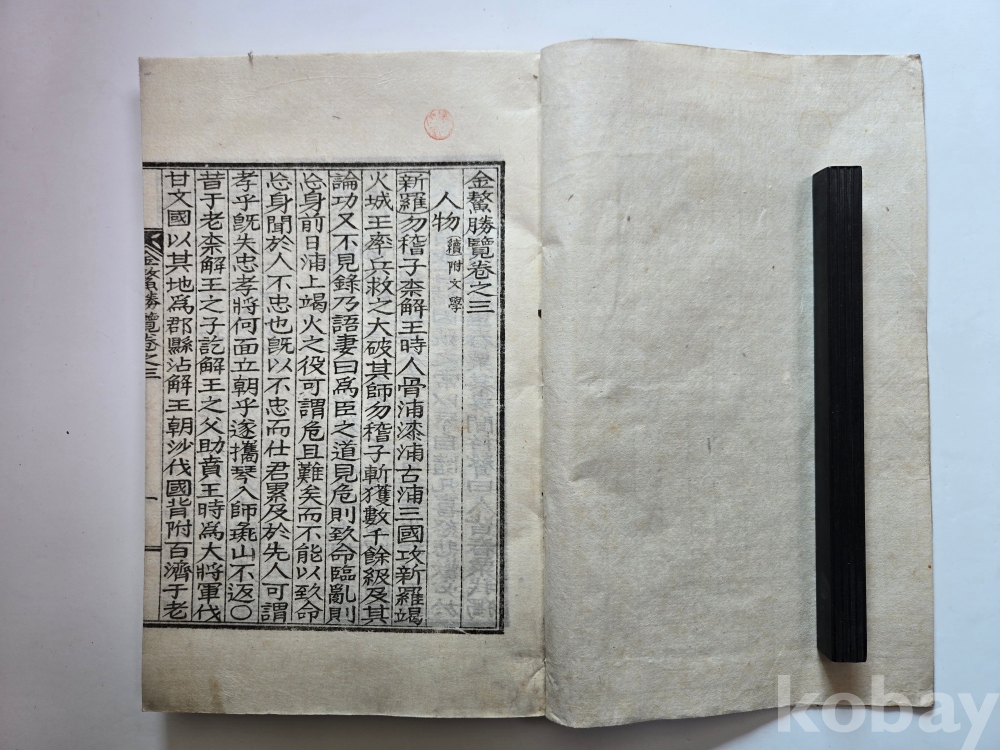 金鰲勝覽卷之三
人物 續附文學
新羅勿稽子柰解王時人骨浦漆浦古浦三國攻新羅竭
火城王率兵救之大破其師勿稽子斬獲數千餘級及其
論功又不見錄乃語妻曰爲臣之道見危則致命臨亂則
忘身前日浦上竭火之役可謂危且難矣而不能以致命
忘身聞於人不忠也旣以不忠而仕君累及於先人可謂
孝乎旣失忠孝將何面立朝乎遂攜琴入師彘山不返〇
昔于老柰解王之子訖解王之父助賁王時爲大將軍伐
甘文國以其地爲郡縣沾解王朝沙伐國背附百濟于老
金鰲勝覽卷之三
一
kobay